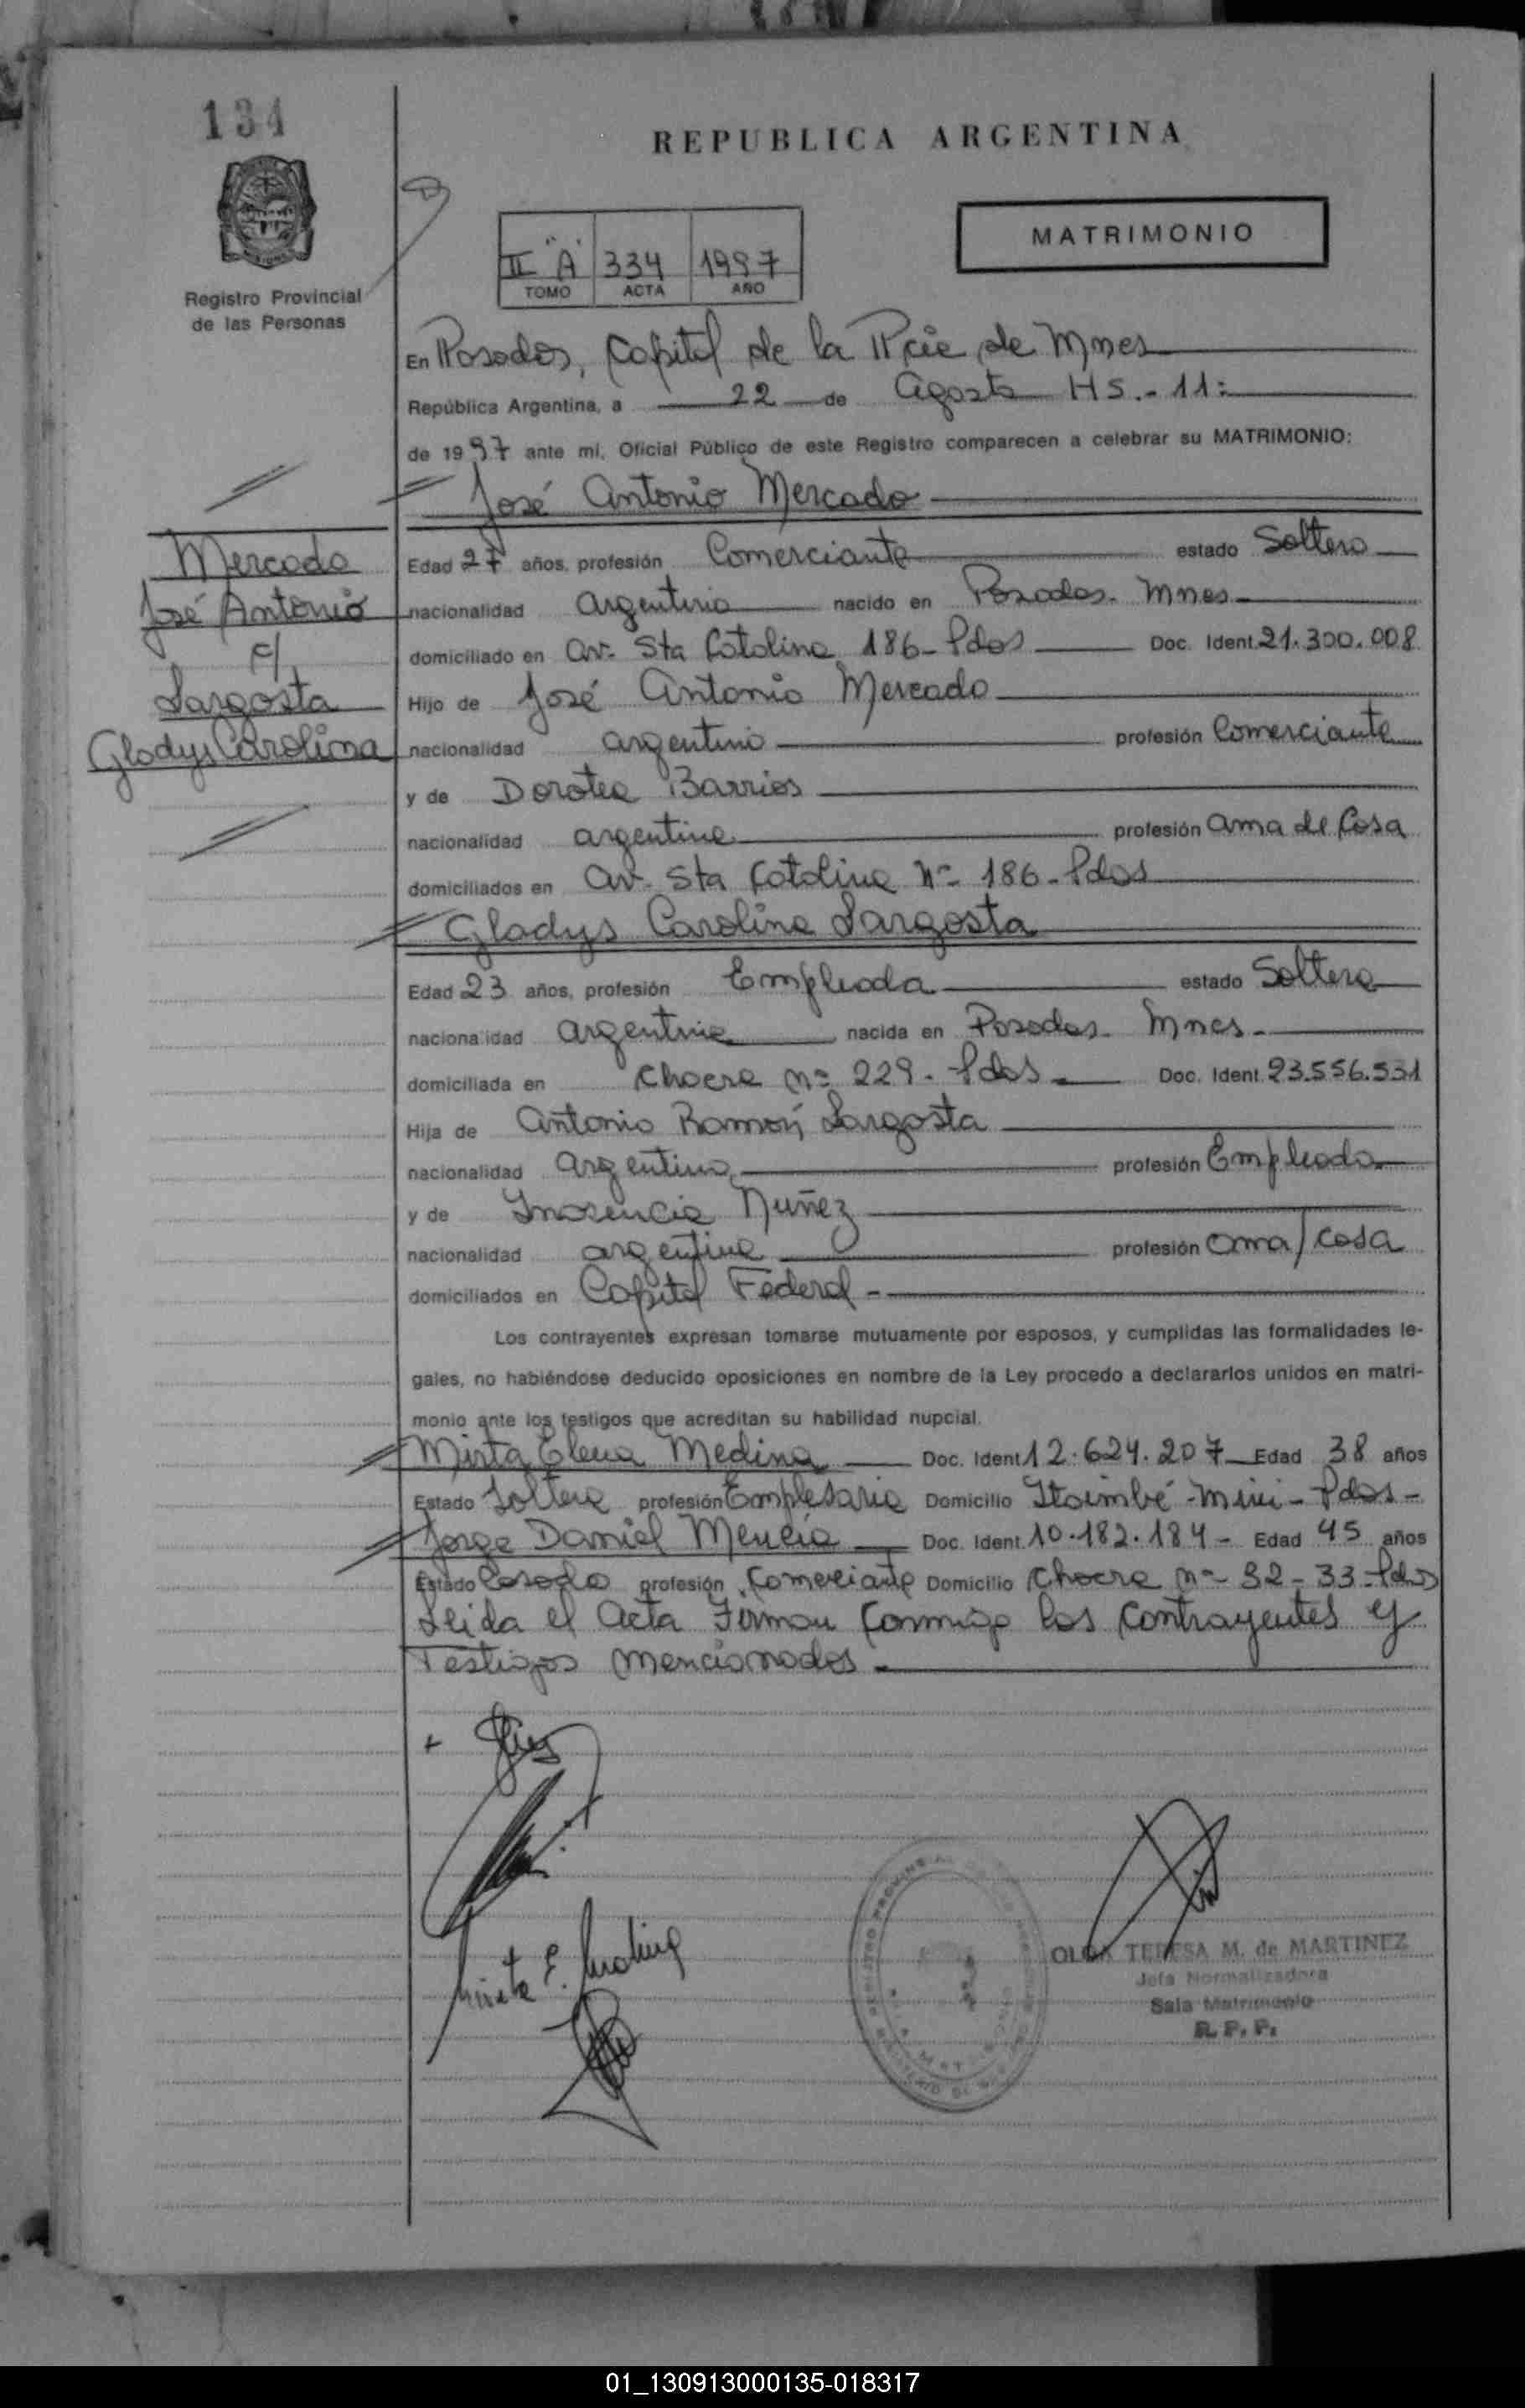 134
REPUBLICA ARGENTINA
MATRIMONIO
II "A" 334 1997
TOMO ACTA AÑO
Registro Provincial
de las Personas
En Posadas, Capital de la Pcie de Mnes
República Argentina, a 22 de Agosto HS.- 11:
de 1997 ante mí, Oficial Público de este Registro comparecen a celebrar su MATRIMONIO:
José Antonio Mercado
Mercado
José Antonio
c/
Largosta
Gladys Carolina
Edad 27 años, profesión Comerciante estado Soltero
nacionalidad argentino nacido en Posadas. Mnes
domiciliado en av. Sta Catalina 186- Pdas Doc. Ident. 21.300.008
Hijo de José Antonio Mercado
nacionalidad argentino profesión Comerciante
y de Dorotea Barrios
nacionalidad argentina profesión ama de Casa
domiciliados en av. Sta Catalina Nº 186- Pdas
Gladys Carolina Largosta
Edad 23 años, profesión Empleada estado Soltera
nacionalidad argentina nacida en Posadas. Mnes.
domiciliada en Chacra nº 229. Pdas. Doc. Ident. 23.556.531
Hija de Antonio Ramón Largosta
nacionalidad argentino profesión Empleado
y de Inosencia Nuñez
nacionalidad argentina profesión ama/casa
domiciliados en Capital Federal-
Los contrayentes expresan tomarse mutuamente por esposos, y cumplidas las formalidades le-
gales, no habiéndose deducido oposiciones en nombre de la Ley procedo a declararlos unidos en matri-
monio ante los testigos que acreditan su habilidad nupcial.
Mirta Elena Medina Doc. Ident 12.624.207 Edad 38 años
Estado Soltera profesión Empresaria Domicilio Itaimbé-Mini-Pdas-
Jorge Daniel Mencia Doc. Ident. 10.182.184- Edad 45 años
Estado Casado profesión Comerciante Domicilio Chacra nº 32-33-Pdas
Leida el Acta Firman conmigo los contrayentes y
Testigos mencionados.
Mirta E. Medina
OLGA TERESA M. de MARTINEZ
Jefa Normalizadora
Sala Matrimonio
R. P. P.
01_130913000135-018317